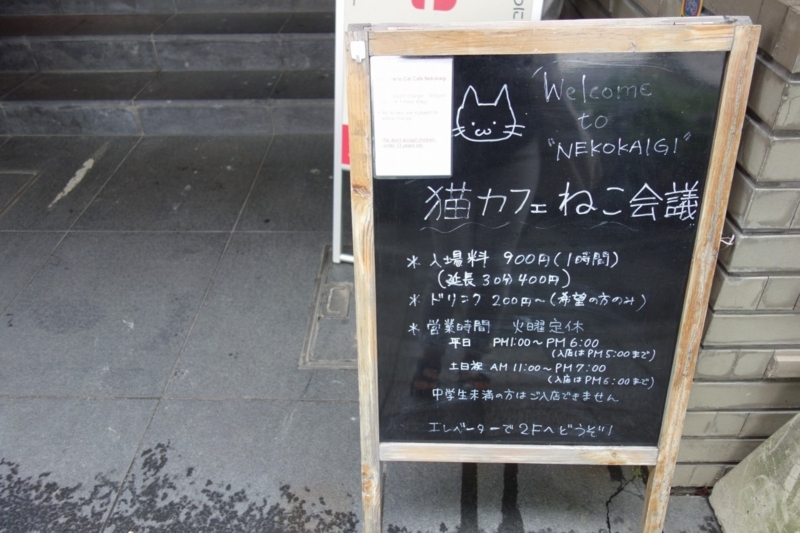 Welcome
to
"NEKOKAIGI"
猫カフェ ねこ会議
＊入場料 900円(1時間)
(延長30分 400円)
＊ドリンク 200円～(希望の方のみ)
＊営業時間 火曜定休
平日 PM1:00～PM6:00
(入店はPM5:00まで)
土日祝 AM11:00～PM7:00
(入店はPM6:00まで)
中学生未満の方はご入店できません
エレベーターで2Fへどうぞ!